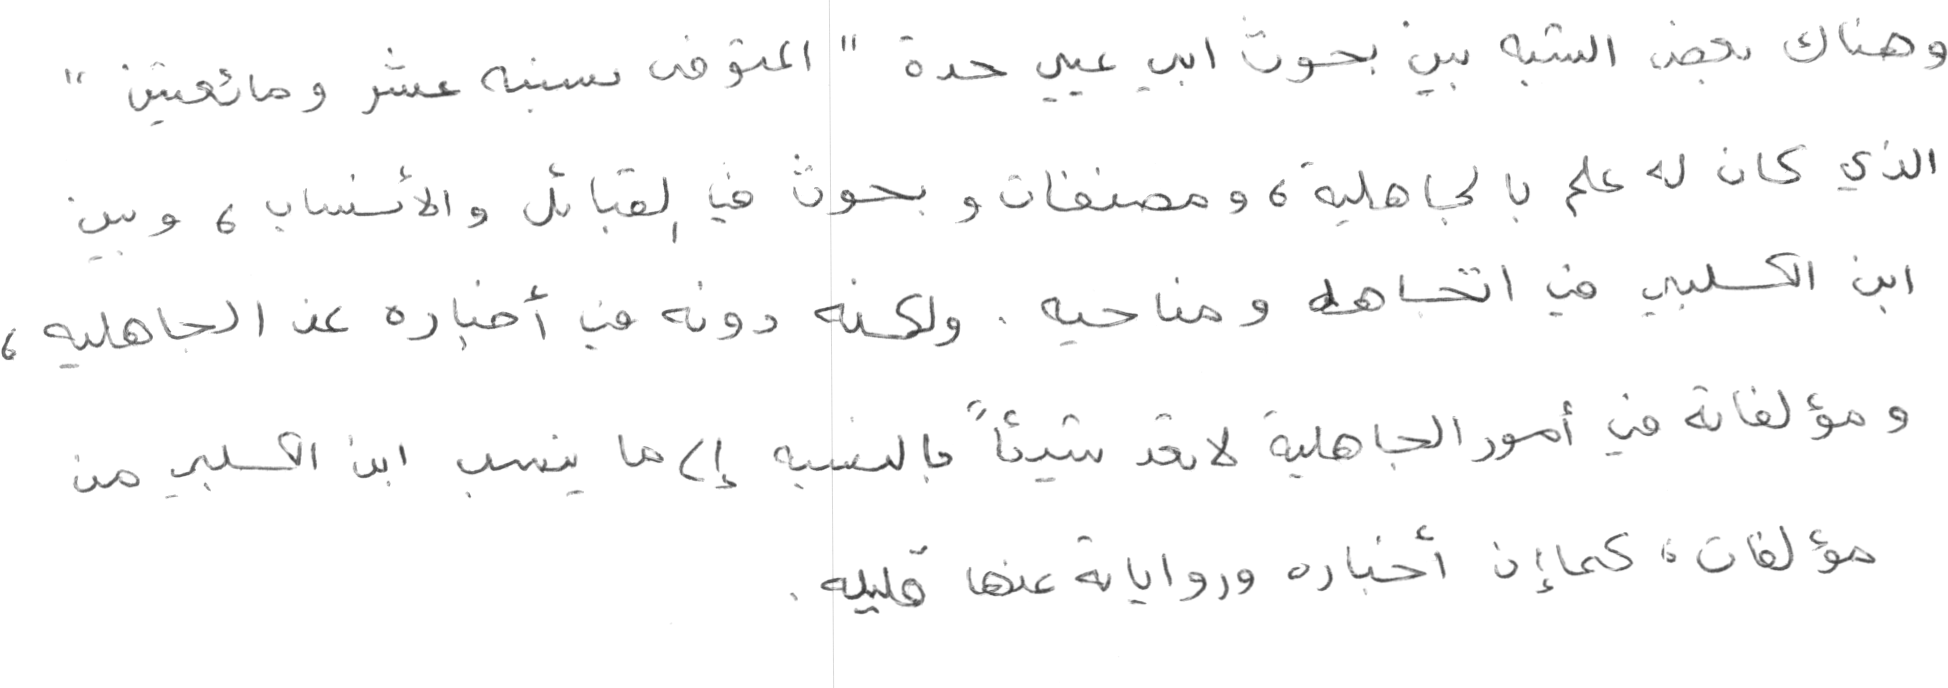 وهناك بعض الشبه بين بحوث ابي عيي حدة " المتوفى بسنه عشر ومائعتين "
الذي كان له علم بالجاهلية ، ومصنفات وبحوث في القبائل والأنساب ، وبين
ابن الكلبي في اتجاهه ومناحيه . ولكنه دونه في أخباره عن الجاهليه ،
ومؤلفاته في أمور الجاهلية لا تعد شيئاً بالنسبه إلى ما ينسب ابن الكلبي من
مؤلفات ، كما إن أخباره ورواياته عنها قليله .